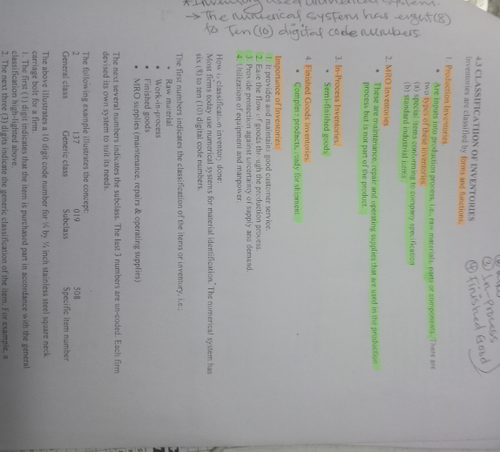 * Inventory used numerical system.
→ The numerical system has eight (8)
to Ten (10) digital code numbers
② In-Process
④ Finished Good
4.3 CLASSIFICATION OF INVENTORIES
Inventories are classified by forms and functions.
1. Production Inventories
Are inputs to manufacturing process, i.e., raw materials, parts or components. There are
two types of these inventories:
(a) special items conforming to company specification
(b) standard industrial items
2. MRO Inventories
• These are maintenance, repair and operating supplies that are used in the production
process but is not part of the product.
3. In-Process Inventories
• Semi-finished goods
4. Finished Goods inventories
• Complete products, ready for shipment
Importance of Inventories:
1. It provides and maintains good customer service.
2. Ease the flow of goods through the production process.
3. Provide protection against uncertainty of supply and demand.
4. Utilization of equipment and manpower.
How is classification inventory done:
Most firms today use numerical systems for material identification. The numerical system has
six (8) to ten (10) digital code numbers.
The first numbers indicates the classification of the items or inventory, i.e.:
• Raw material
• Work-in-process
• Finished goods
• MRO supplies (maintenance, repairs & operating supplies)
The next several numbers indicates the subclass. The last 3 numbers are un-coded. Each firm
devised its own system to suit its needs.
The following example illustrates the concept:
2 137 019 508
General class Generic class Subclass Specific item number
The above illustrates a 10 digit code number for ¼ by ¾ inch stainless steel square neck
carriage bolt for a firm.
1. The first (1) digit indicates that the item is purchased part in accordance with the general
classification above.
2. The next three (3) digits indicate the generic classification of the item. For example, a